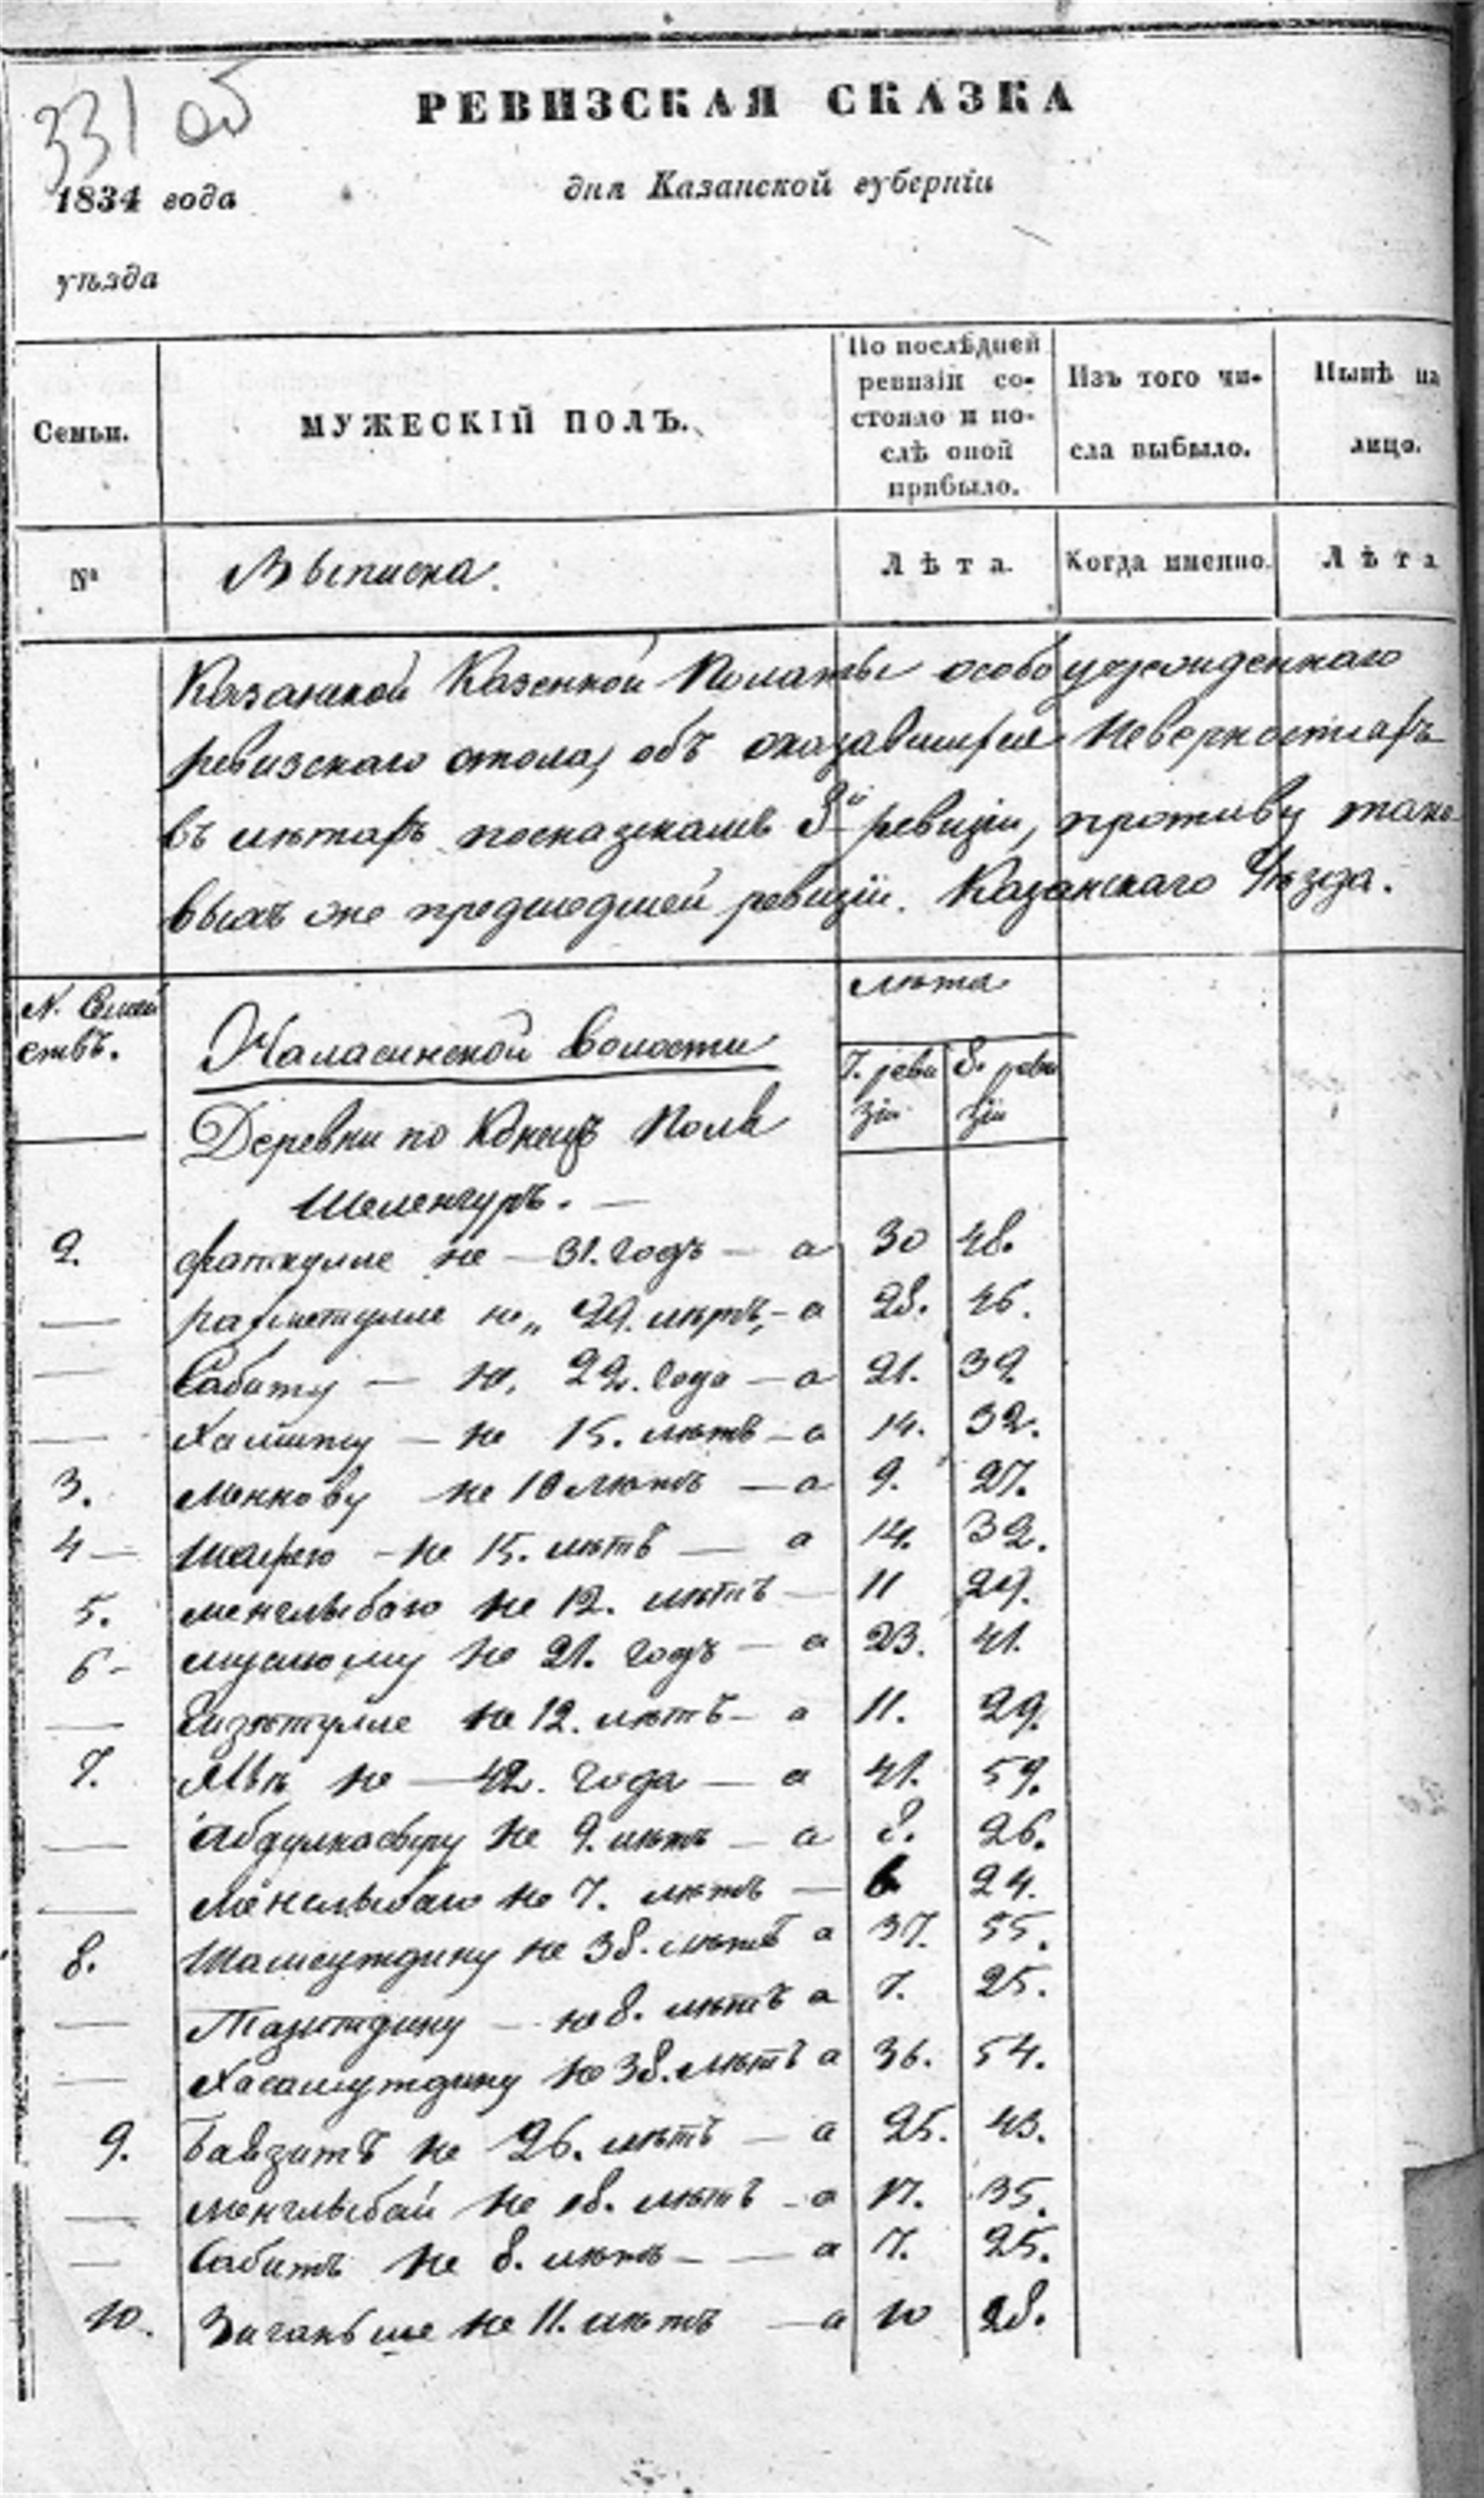 331 об
РЕВИЗСКАЯ СКАЗКА
1834 года
дня Казанской губерніи
уѣзда
Семьи.
МУЖЕСКІЙ ПОЛЪ.
По послѣдней
ревизіи со-
стояло и по-
слѣ оной
прибыло.
Изъ того чи-
сла выбыло.
Нынѣ на
лицо.
№
Выписка.
Лѣта.
Когда именно.
Лѣта
Казанской Казенной Полаты особо учрежденнаго
ревизскаго стола, объ оказавшихся неверностяхъ
въ летахъ посказкамъ 8й ревизіи, противу тако
выхъ же предшедшей ревизіи. Казанскаго Уѣзда.
N. Семей
ствъ.
лѣта
волости
7. реви
зіи
8. реви
зіи
Деревни по Конецъ Поля
Шеленгуръ. —
2. Фаткулле не — 31. годъ — а 30 48.
— Рахметулле не „ 29. лѣтъ, - а 28. 46.
— Сабиту — не, 22. года — а 21. 39
— Халиту — не 15. лѣтъ — а 14. 32.
3. не 10 лѣтъ — а 9. 27.
4 — не 15. лѣтъ — а 14. 32.
5. Менглыбаю не 12. лѣтъ — 11 29.
6 - не 21. годъ — а 23. 41.
— не 12. лѣтъ — а 11. 29.
7. не — 42. года — а 41. 59.
— не 9. лѣтъ — а 8. 26.
— не 7. лѣтъ — 6 24.
8. Шамсутдину не 38. лѣтъ а 37. 55.
— Тазитдину — не 8. лѣтъ а 7. 25.
— Хасамутдину не 38. лѣтъ а 36. 54.
9. Бавзитъ не 26. лѣтъ — а 25. 43.
— Менглыбай не 18. лѣтъ - а 17. 35.
— Сабитъ не 8. лѣтъ — — а 7. 25.
10. не 11. лѣтъ — а 10 28.